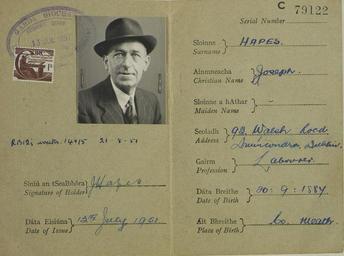 GARDA SIOCH
13 JUL 1951
21-8-51
Síniú an tSealbhóra J Hapes
Signature of Holder
Dáta Eisiúna 13th July 1951
Date of Issue
C 79122
Serial Number
Sloinne HAPES.
Surname
Ainmneacha Joseph.
Christian Name
Sloinne a hAthar -
Maiden Name
Seoladh 92 Walsh Road.
Address Drumcondra, Dublin.
Gairm Labourer
Profession
Dáta Breithe 20:9:1884
Date of Birth
Áit Bhreithe Co. Meath.
Place of Birth